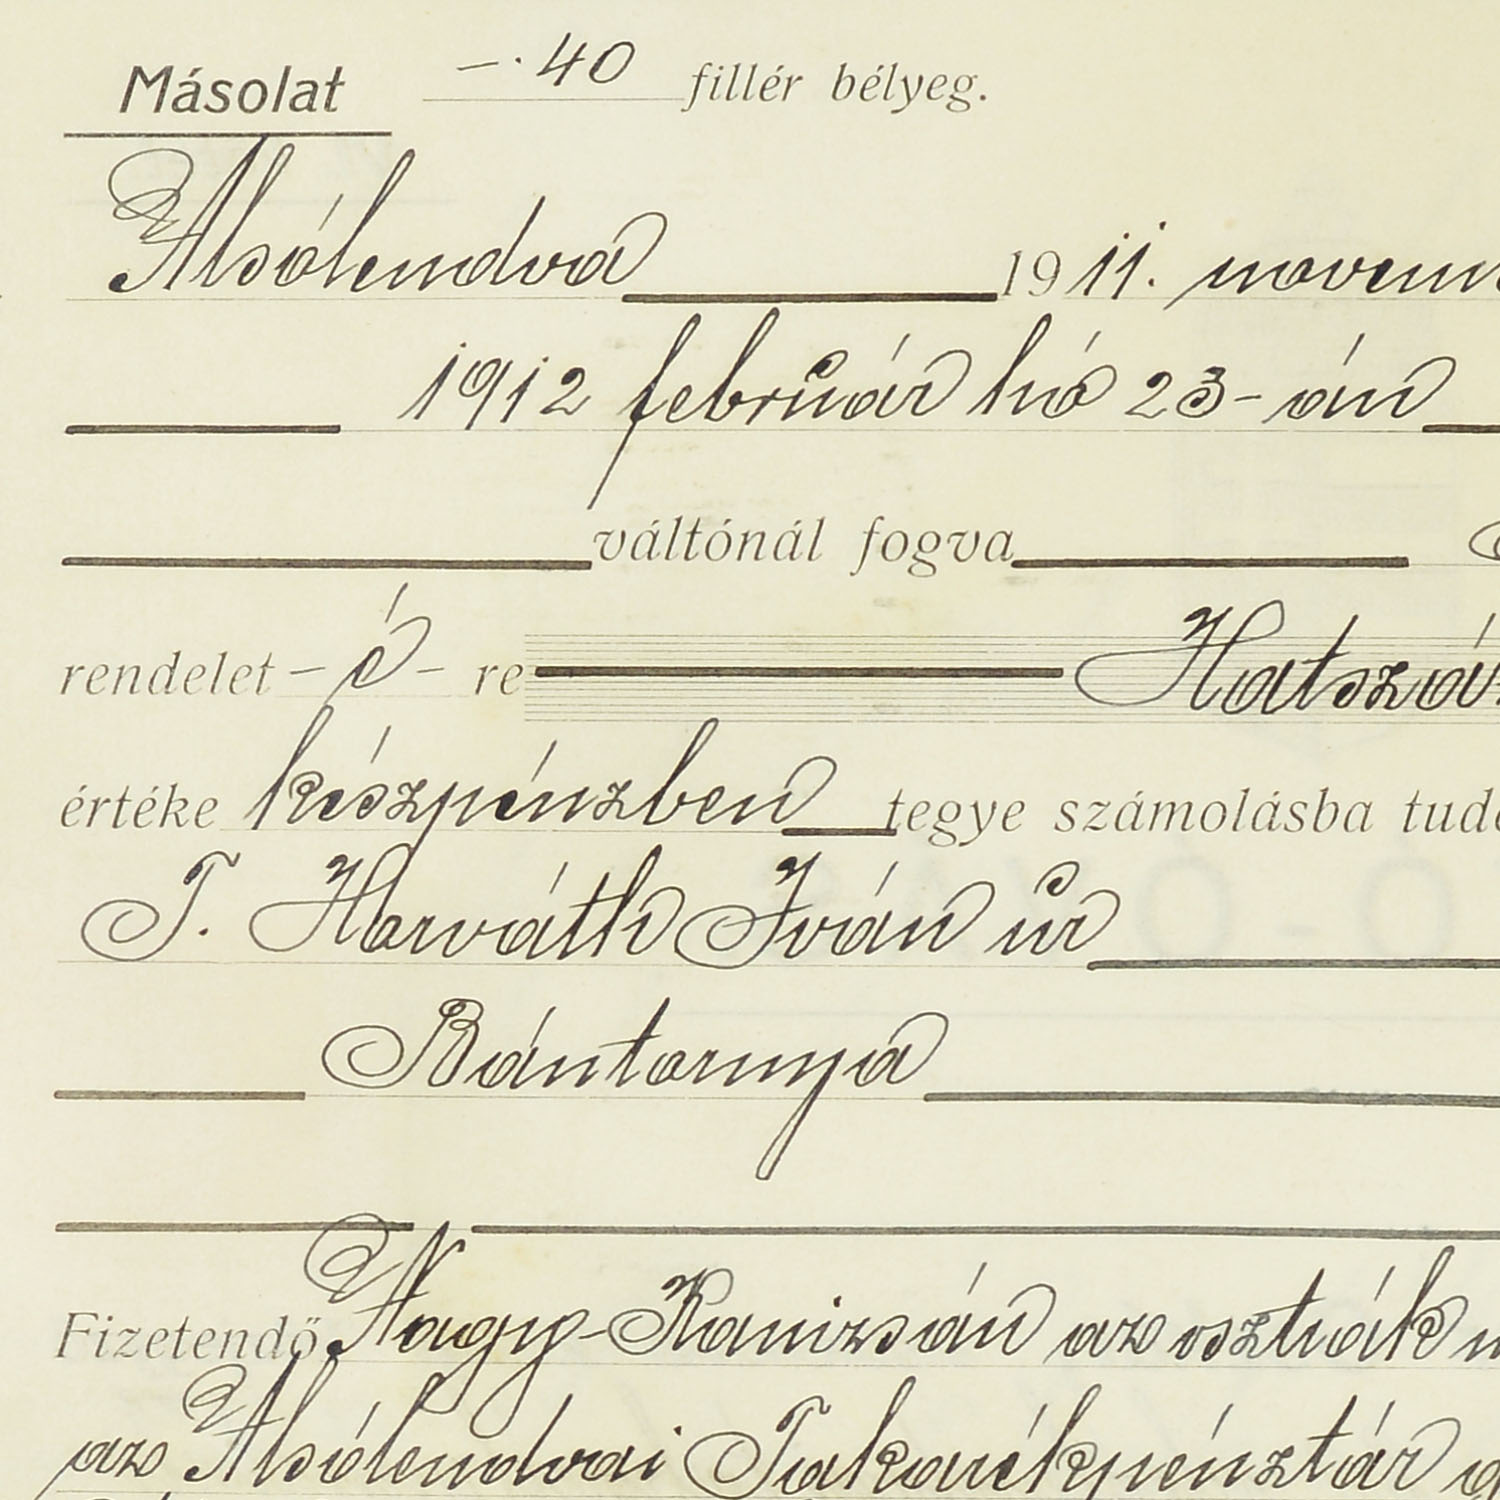 Másolat —.40 fillér bélyeg.
Alsólendva 1911. novem
1912 február hó 23-án
váltónál fogva
rendelet – é – re Hatszáz
értéke készpénzben tegye számolásba tud
T. Horváth Iván úr
Bántornya
Fizetendő Nagy-Kanizsán az osztrák
az Alsólendvai Takarékpénztár